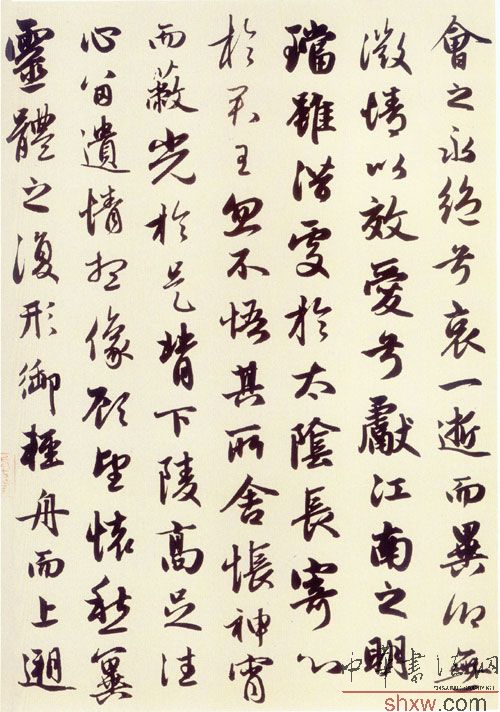 會之永絕兮哀一逝而異鄉無
微情以效愛兮獻江南之明
璫雖潛處於太陰長寄心
於君王忽不悟其所舍悵神宵
而蔽光於是背下陵高足往
心留遺情想像顧望懷愁冀
靈體之復形御輕舟而上遡
中華書法网
shxw.com